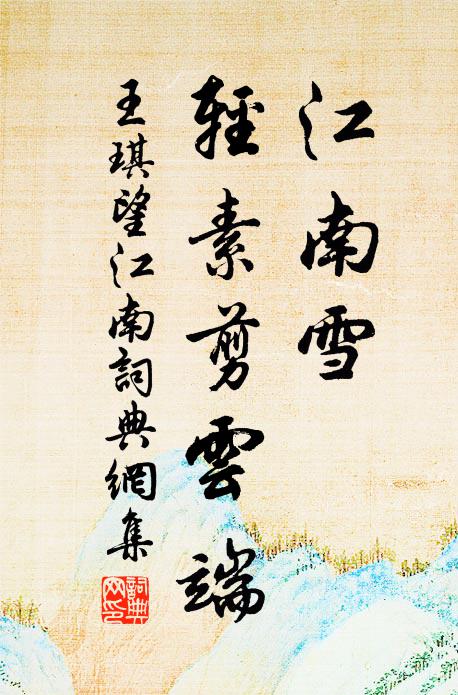 江南雪
輕素剪雲端
王琪望江南詞典網集
詞典